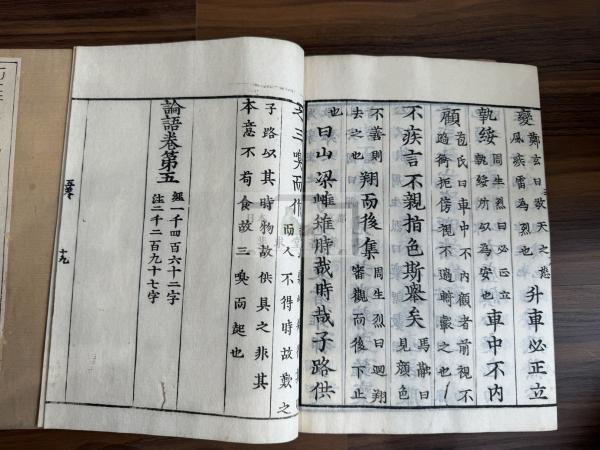 變 鄭玄曰敬天之怒
風疾雷為烈也 升車必正立
執綏 周生烈曰必正立
執綏所以為安也 車中不内
顧 苞氏曰車中不内顧者前視不
過衡枙傍視不過輢轂之也
不疾言不親指色斯舉矣 馬融曰
見顏色
不善則
去之也 翔而後集 周生烈曰迴翔
審觀而後下止
也 曰山梁雌雉時哉時哉子路供
之三嗅而作
而人不得時故歎之
子路以其時物故供具之非其
本意不苟食故三嗅而起也
論語卷第五 經一千四百六十二字
註二千二百九十七字
十九